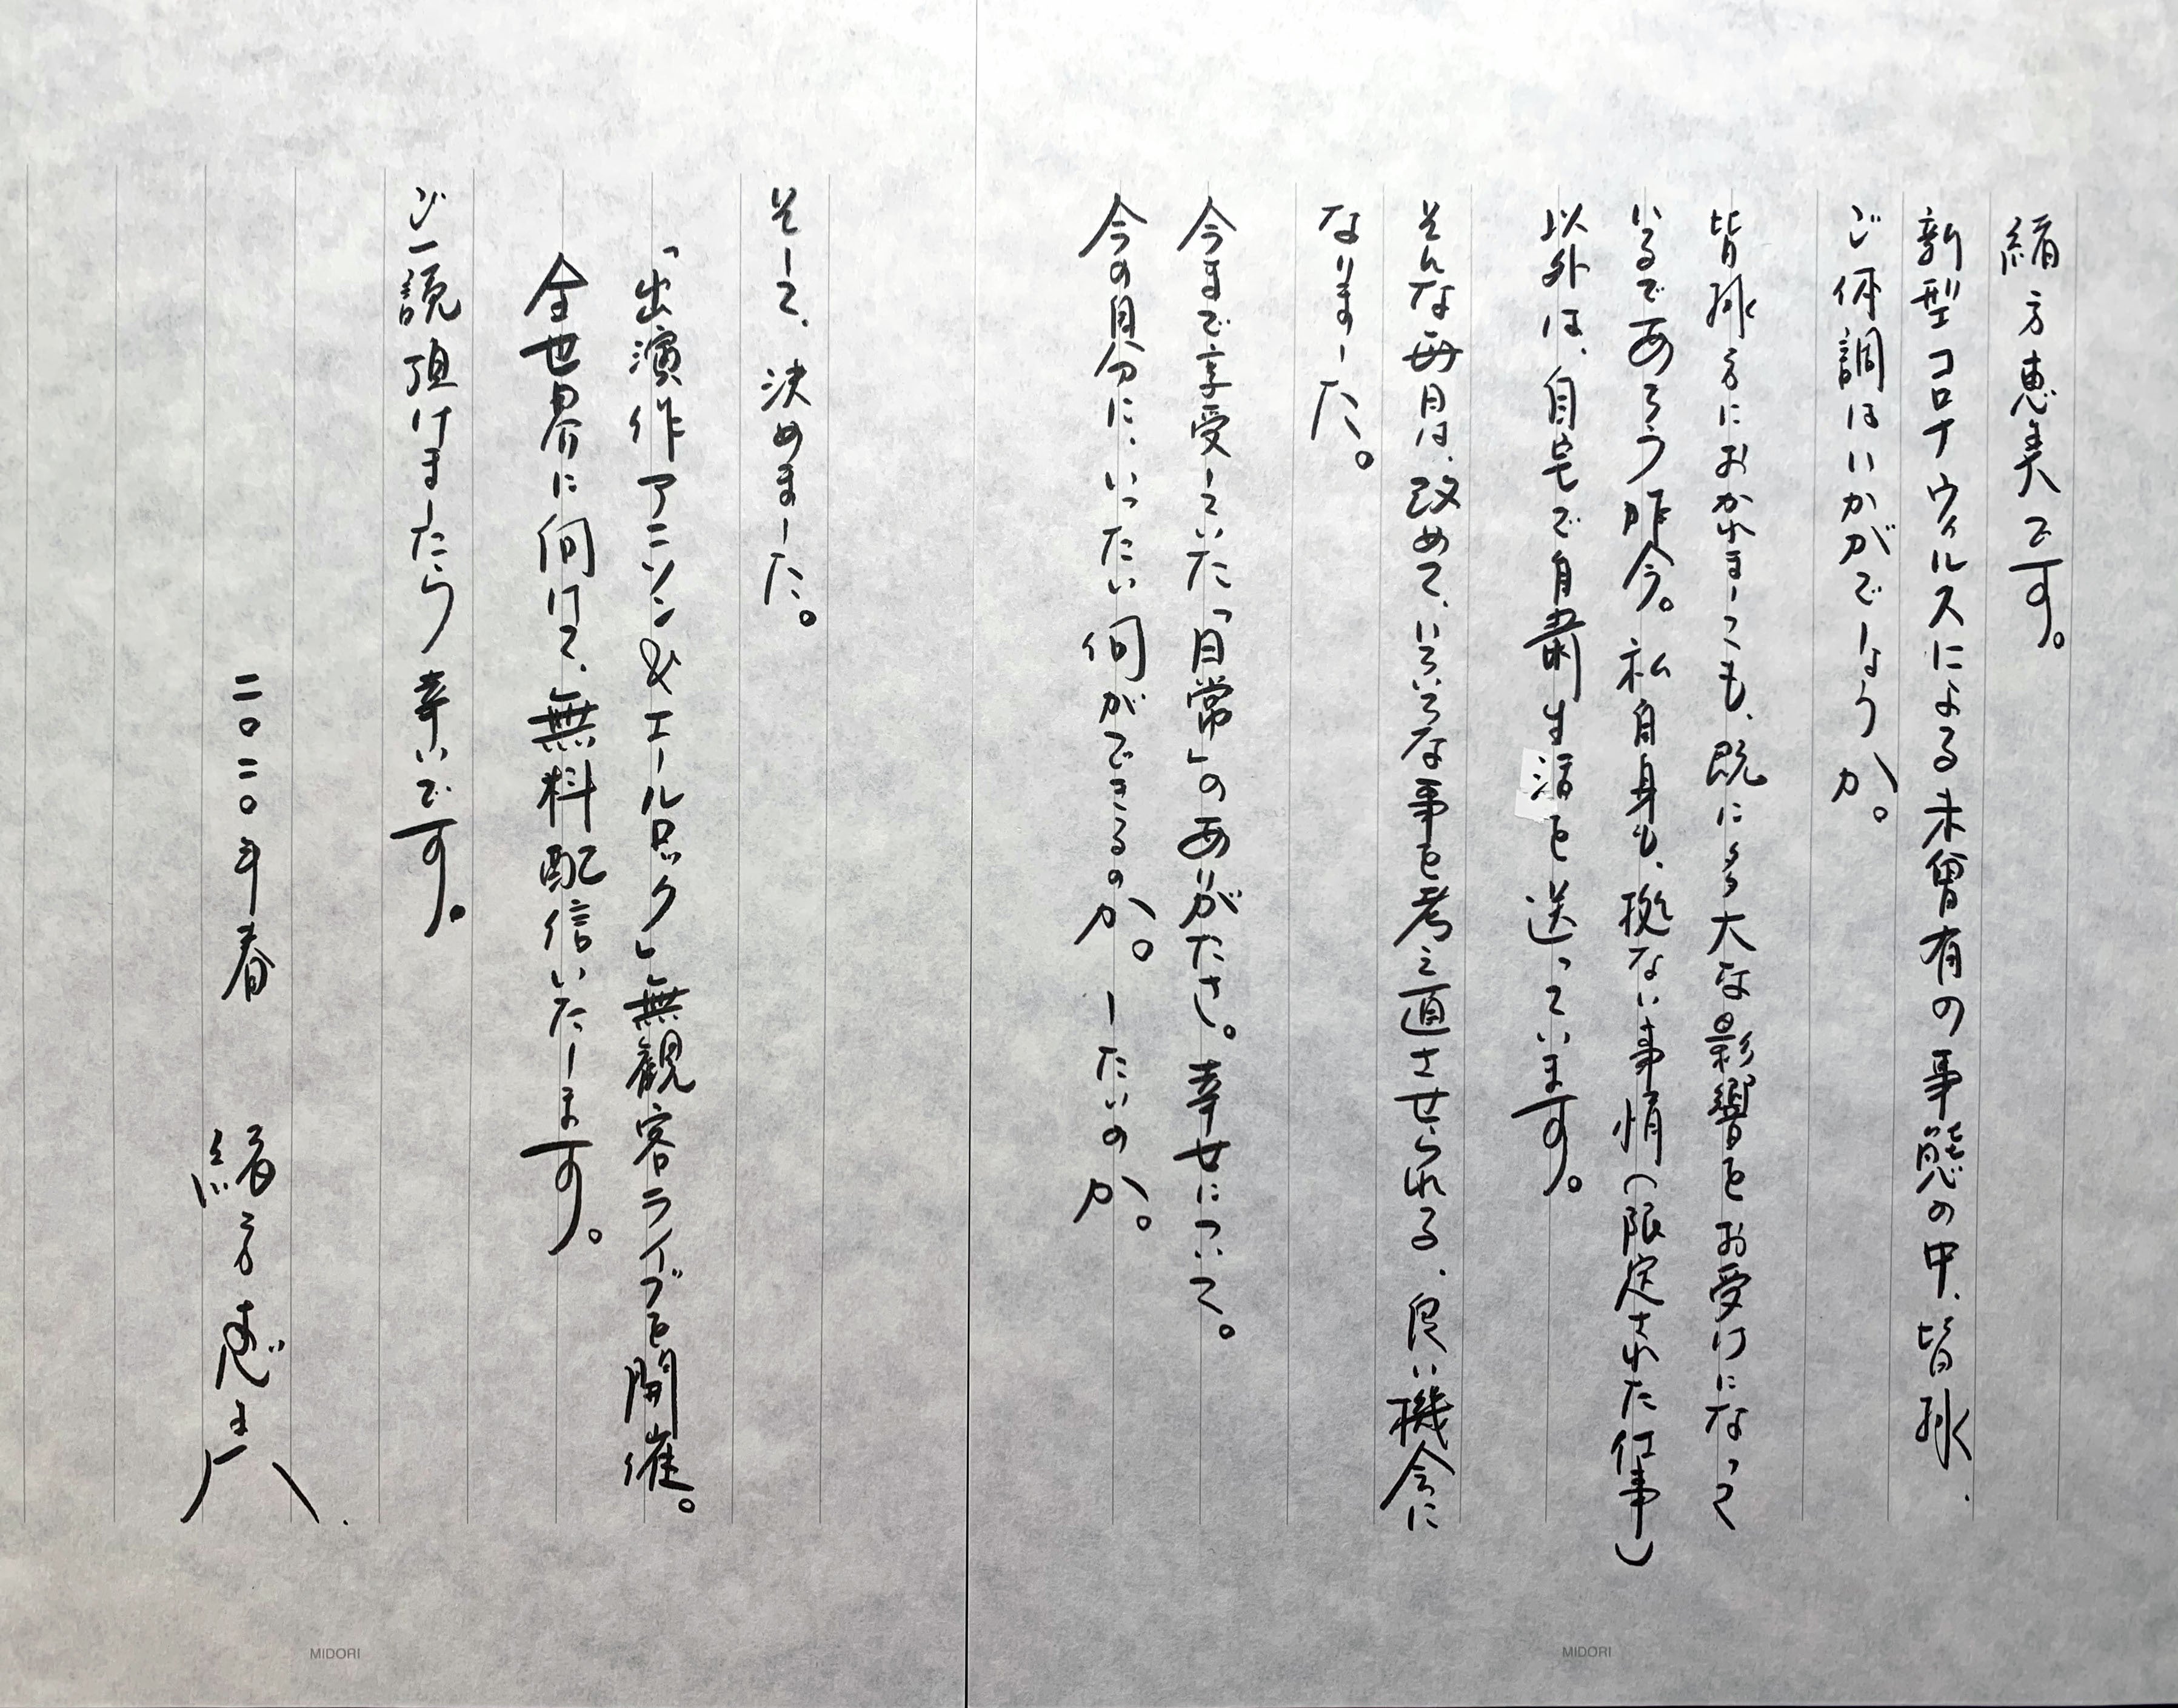 緒方恵美です。
新型コロナウィルスによる未曾有の事態の中、皆様、
ご体調はいかがでしょうか。
皆様方におかれましても、既に多大な影響をお受けになって
いるであろう昨今。私自身も、拠ない事情(限定された仕事)
以外は、自宅で自粛生活を送っています。
そんな毎日は、改めて、いろいろな事を考え直させられる、良い機会に
なりました。
今まで享受していた「日常」のありがたさ。幸せについて。
今の自分に、いったい何ができるのか。したいのか。
そして、決めました。
「出演作アニソン&エールロック」無観客ライブを開催。
全世界に向けて、無料配信いたします。
ご一読頂けましたら幸いです。
二〇二〇年春 緒方恵美
MIDORI
MIDORI